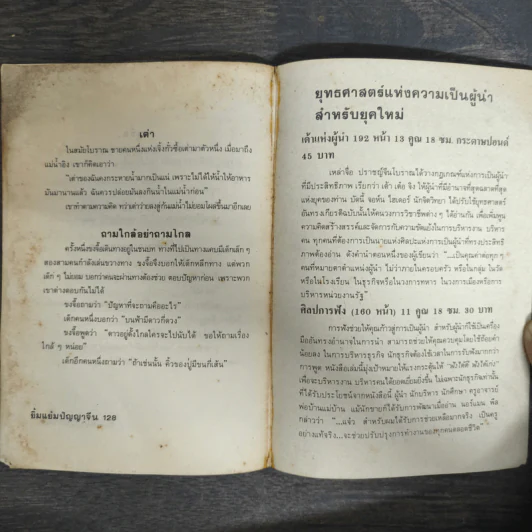 เต่า
ในสมัยโบราณ ชายคนหนึ่งแห่งเจิ้งกั๋วซื้อเต่ามาตัวหนึ่ง เมื่อมาถึง
แม่น้ำอิง เขาก็คิดเอาว่า
"เต่าของฉันคงกระหายน้ำมากเป็นแน่ เพราะไม่ได้ให้น้ำให้อาหาร
มันมานานแล้ว ฉันควรปล่อยมันลงกินน้ำในแม่น้ำก่อน"
เขาทำตามความคิด ทว่าเต่าว่ายลงสู่ก้นแม่น้ำไม่ยอมโผล่ขึ้นมาอีกเลย
ถามใกล้อย่าถามไกล
ครั้งหนึ่งขงจื้อเดินทางอยู่ในชนบท ทางที่ไปเป็นทางแคบมีเด็กเล็ก ๆ
สองสามคนกำลังเล่นขวางทาง ขงจื้อจึงบอกให้เด็กหลีกทาง แต่พวก
เด็ก ๆ ไม่ยอม บอกว่าคนจะผ่านทางต้องช่วย ตอบปัญหาก่อน เพราะพวก
เขาต่างตอบกันไม่ได้
ขงจื้อถามว่า "ปัญหาที่จะถามคืออะไร"
เด็กคนหนึ่งบอกว่า "บนฟ้ามีดาวกี่ดวง"
ขงจื้อพูดว่า "ดาวอยู่ตั้งไกลใครจะไปนับได้ ขอให้ถามเรื่อง
ใกล้ ๆ หน่อย"
เด็กอีกคนหนึ่งถามว่า "ถ้าเช่นนั้น คิ้วของปู่มีขนกี่เส้น"
ยิ้มแย้มปัญญาจีน 128
ยุทธศาสตร์แห่งความเป็นผู้นำ
สำหรับยุคใหม่
เต๋าแห่งผู้นำ 192 หน้า 13 คูณ 18 ซม. กระดาษปอนด์
45 บาท
เหล่าจื่อ ปราชญ์จีนโบราณได้วางกฎเกณฑ์แห่งการเป็นผู้นำ
ที่มีประสิทธิภาพ เรียกว่า เต๋า เต้อ จิง ให้ผู้นำที่มีอำนาจที่สุดฉลาดที่สุด
แห่งยุคของท่าน บัดนี้ จอห์น ไฮเดอร์ นักจิตวิทยา ได้ปรับใช้ยุทธศาสตร์
อันทรงเกียรติฉบับนั้นให้คนวงการวิชาชีพต่าง ๆ ได้อ่านกัน เพื่อเพิ่มพูน
ความคิดสร้างสรรค์และจัดการกับความขัดแย้งในการบริหารงาน บริหาร
คน ทุกคนที่ต้องการเป็นนายแห่งศิลปะแห่งการเป็นผู้นำที่ทรงประสิทธิ
ภาพต้องอ่าน ดังคำนำตอนหนึ่งของผู้เขียนว่า "...เป็นคุณค่าต่อทุก ๆ
คนที่หมายตาตำแหน่งผู้นำ ไม่ว่าภายในครอบครัว หรือในกลุ่ม ในวัด
หรือในโรงเรียน ในธุรกิจหรือในวงการทหาร ในวงการเมืองหรือการ
บริหารหน่วยงานรัฐ"
ศิลปการฟัง (160 หน้า) 11 คูณ 18 ซม. 30 บาท
การฟังช่วยให้คุณก้าวสู่การเป็นผู้นำ สำหรับผู้นำก็ใช้เป็นเครื่อง
มืออันทรงอำนาจในการนำ สามารถช่วยให้คุณควบคุมโดยใช้ถ้อยคำ
น้อยลง ในการบริหารธุรกิจ นักธุรกิจต้องใช้เวลาในการรับฟังมากกว่า
การพูด หนังสือเล่มนี้มุ่งเป้าหมายให้แรงกระตุ้นให้ "ฟังให้ดี ฟังให้เก่ง"
เพื่อจะบริหารงาน บริหารคนได้ยอดเยี่ยมยิ่งขึ้น ไม่เฉพาะนักธุรกิจเท่านั้น
ที่ได้รับประโยชน์จากหนังสือนี้ ผู้นำ นักบริหาร นักศึกษา ครูอาจารย์
พ่อบ้านแม่บ้าน แม้นักขายก็ได้รับการพัฒนาเมื่ออ่าน นอร์แมน พีล
กล่าวว่า "...แจ๋ว สำหรับผมได้รับการช่วยเหลือมากจริง เป็นครู
อย่างแท้จริง...จะช่วยปรับปรุงการทำงานของทุกคนตลอดชีวิต"